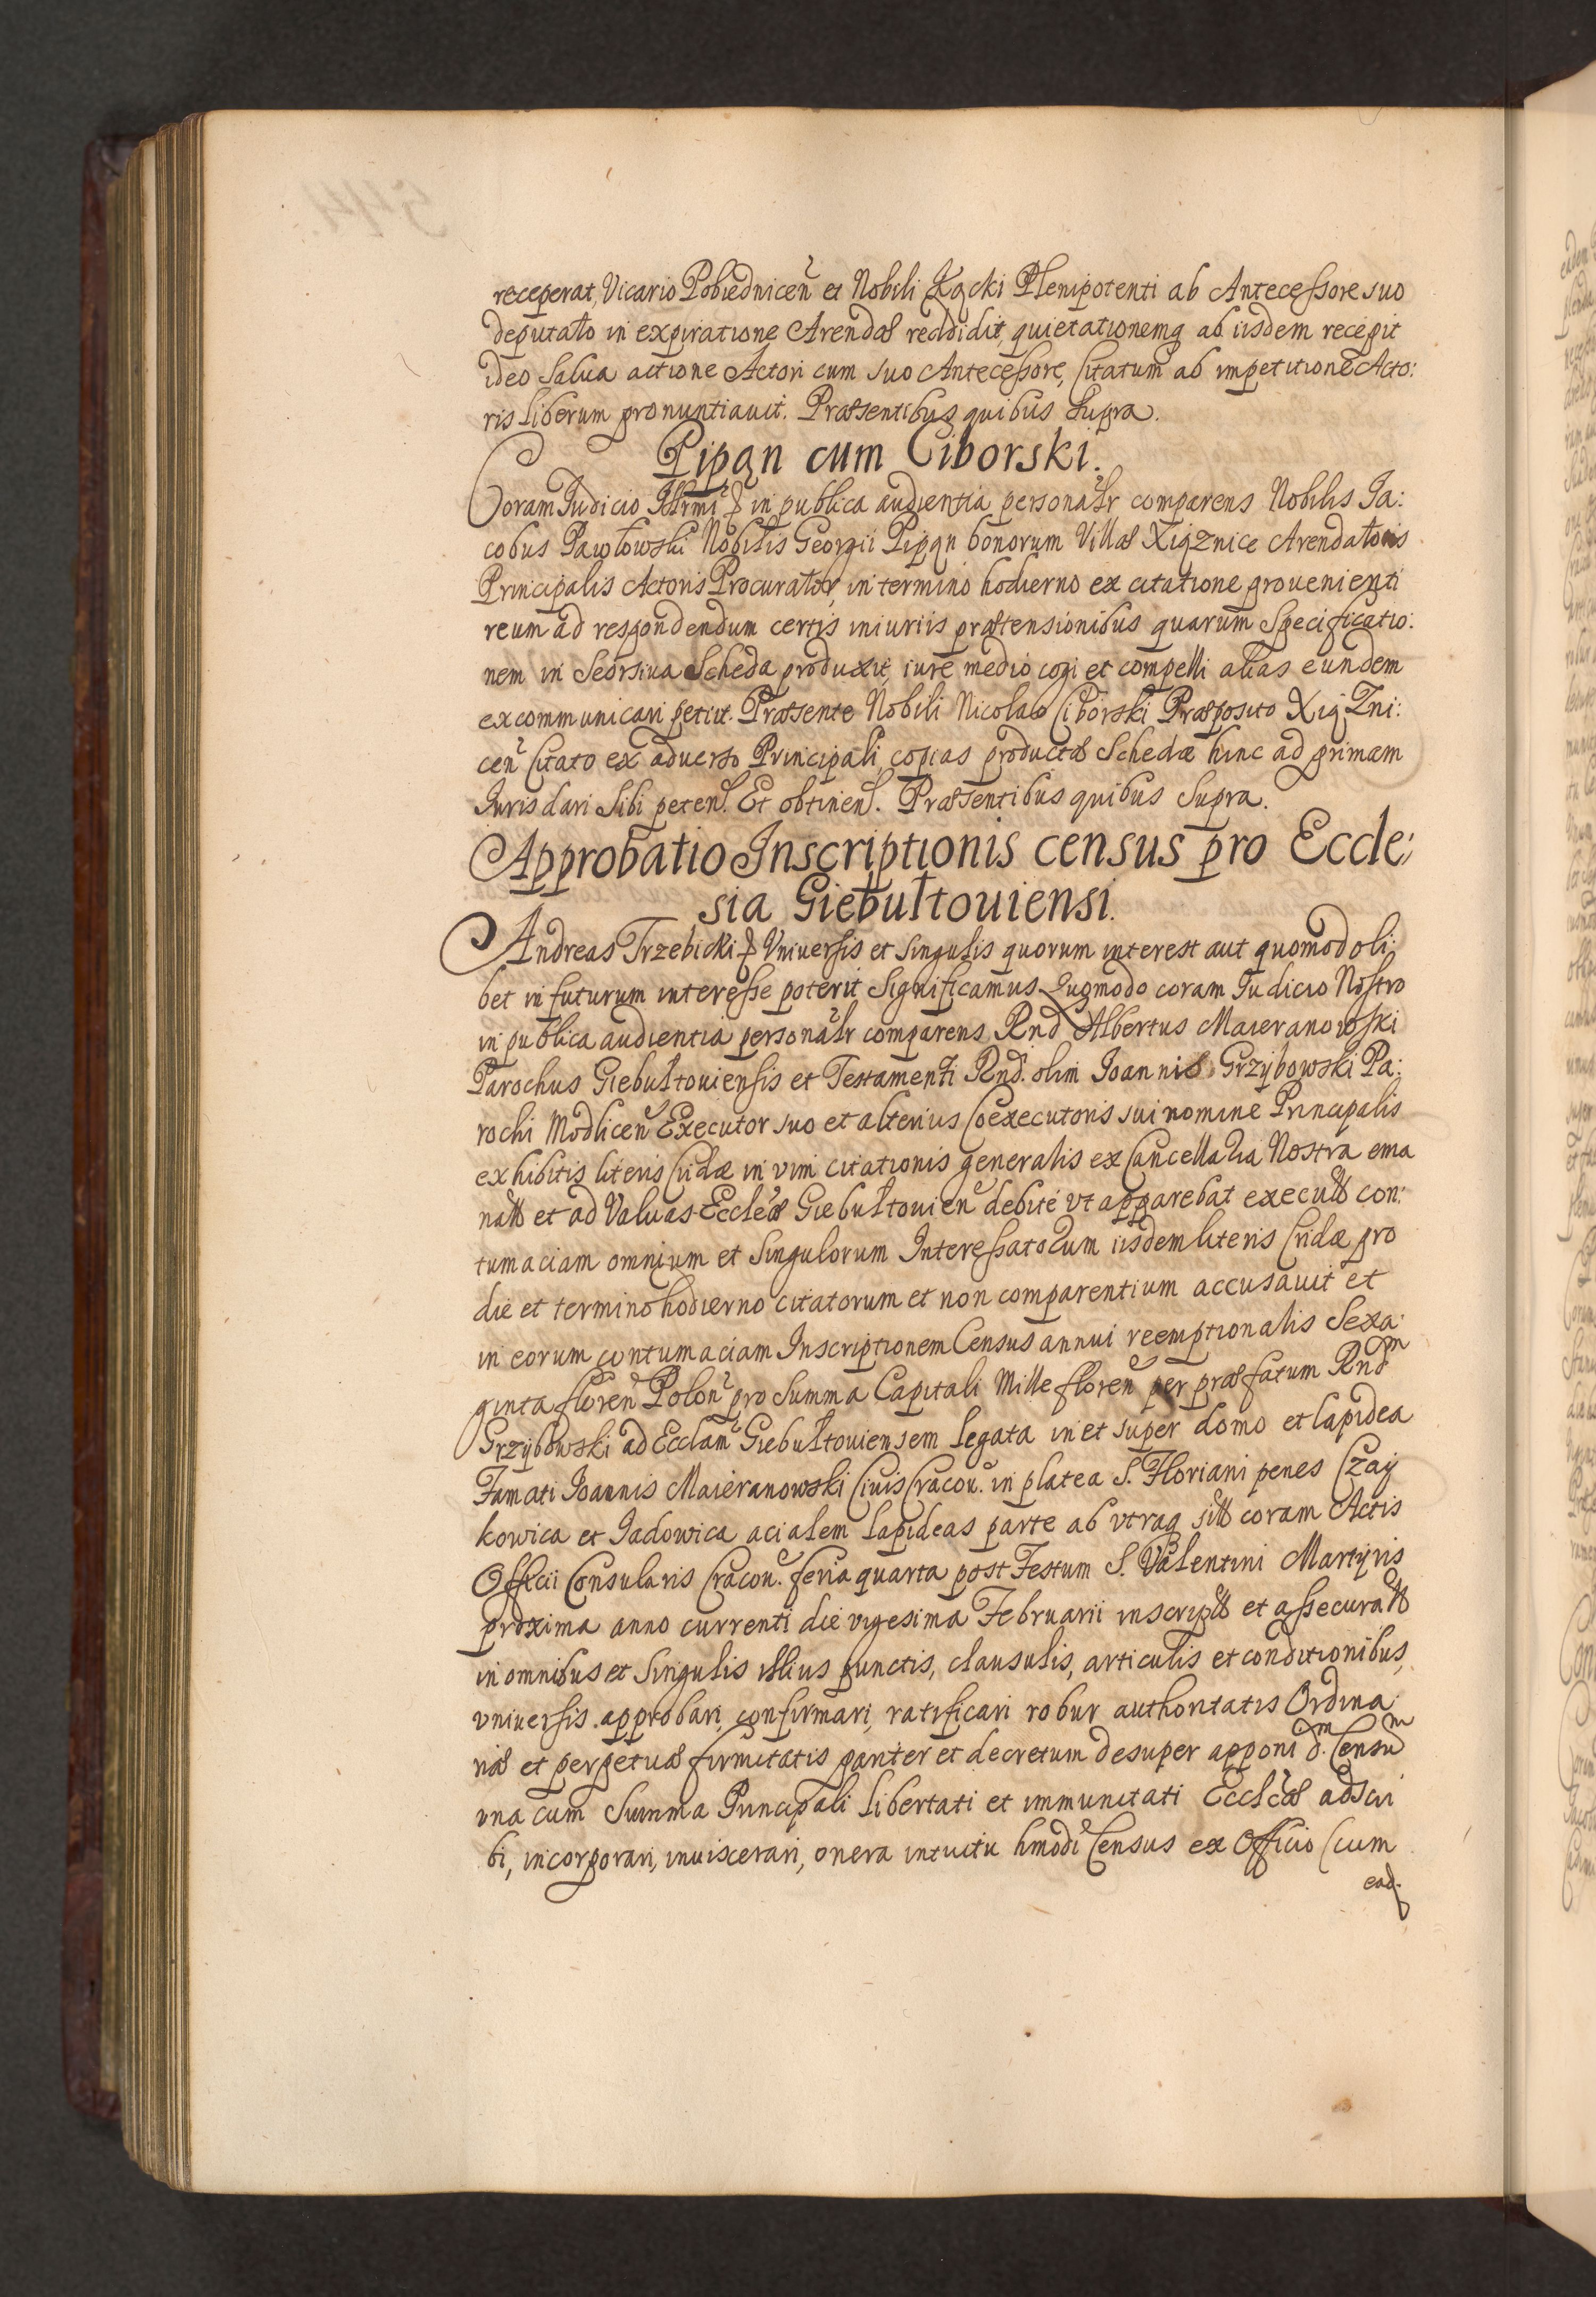 receperat, Vicario Pobiednicen et Nobili Kącki Plenipotenti ab Antecessore suo
deputato in expiratione Arendæ reddidit, quietationemq ab iisdem recepit
ideo Salua actione Actori cum suo Antecessore, Citatum ab impetitione Acto:
ris liberum pronuntiauit. Præsentibus quibus Supra.
Pipąn cum Ciborski.
Coram Iudicio Illrmi in publica audientia personalr comparens Nobilis Ia:
cobus Pawłowski Nobilis Georgii Pipąn bonorum Villæ Xiąznice Arendatoris
Principalis Actoris Procurator, in termino hodierno ex citatione prouenienti
reum ad respondendum certis iniuriis prætensionibus quarum Specificatio:
nem in Seorsiua Scheda produxit, iure medio cogi et compelli alias eundem
excommunicari petiit. Præsente Nobili Nicolao Ciborski Præposito Xiązni:
cen Citato ex aduerso Principali, copias productæ Schedæ hinc ad primam
Iuris dari Sibi peten. Et obtinen. Præsentibus quibus Supra.
Approbatio Inscriptionis census pro Eccle:
sia Giebułtouiensi.
Andreas Trzebicki Vniuersis et Singulis quorum interest aut quomodoli:
bet in futurum interesse poterit Significamus Quomodo coram Iudicio Nostro
in publica audientia personalr comparens Rnd Albertus Maieranowski
Parochus Giebułtouiensis et Testamenti Rnd. olim Ioannis Grzybowski Pa:
rochi Modlicen Executor suo et alterius Coexecutoris sui nomine Principalis
exhibitis literis Cridæ in vim citationis generalis ex Cancellaria Nostra ema
natis et ad Valuas Eccleæ Giebułtouien debite vt apparebat executis con:
tumaciam omnium et Singulorum Interessatorum iisdem literis Cridæ pro
die et termino hodierno citatorum et non comparentium accusauit et
in eorum contumaciam Inscriptionem Census annui reemptionalis Sexa:
ginta floren Polon pro Summa Capitali Mille floren per præfatum Rndm
Grzybowski ad Ecclam Giebułtouiensem legata in et super domo et lapidea
Famati Ioannis Maieranowski Ciuis Cracou. in platea S. Floriani penes Czay
kowica et Iadowica acialem lapideas parte ab vtraq sitis coram Actis
Officii Consularis Cracou. feria quarta post Festum S. Valentini Martyris
proxima anno currenti die vigesima Februarii inscriptis et assecuratis
in omnibus et Singulis illius punctis, clausulis, articulis et conditionibus,
vniuersis approbari, confirmari, ratificari robur authoritatis Ordina
riæ et perpetuæ firmitatis pariter et decretum desuper apponi dm. Censum
vna cum Summa Principali libertati et immunitati Eccleæ adscri
bi, incorporari, inuiscerari, onera intuitu hmodi Census ex Officio Cum
ead.